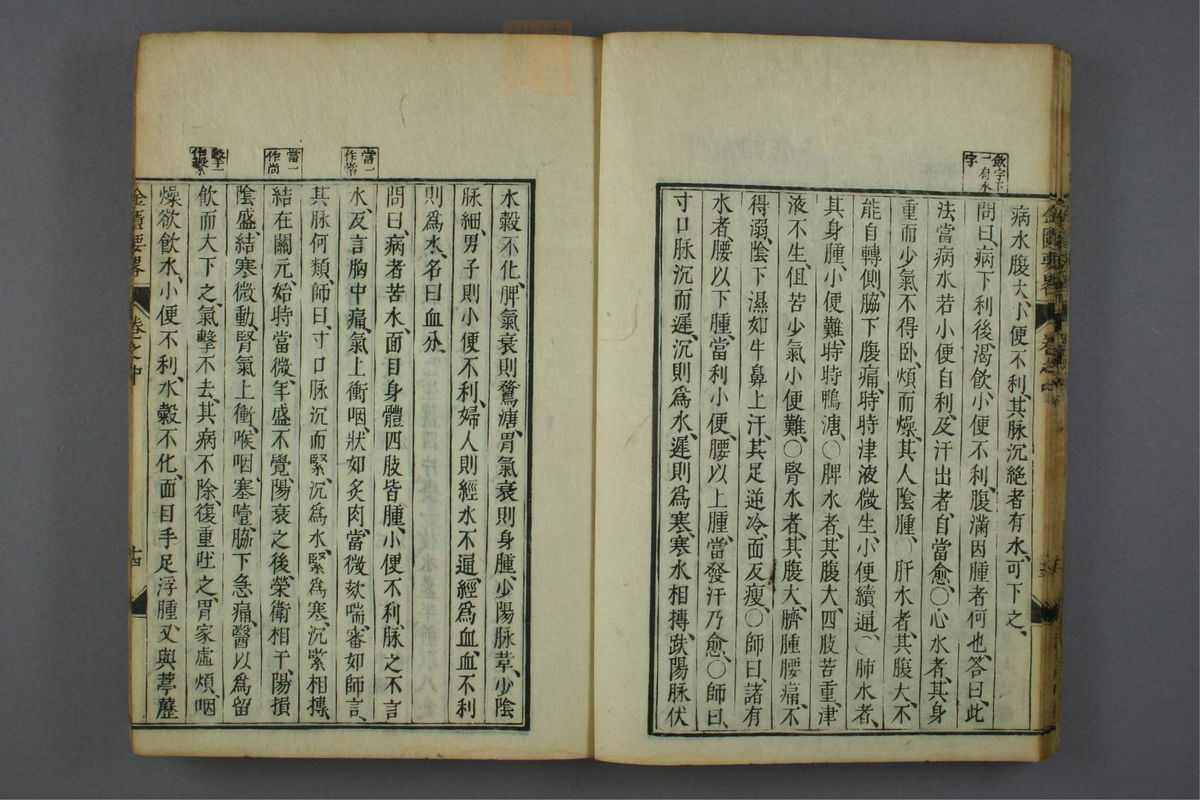 飲字下
一有水
字
病水腹大小便不利其脉沉絶者有水可下之
問曰病下利後渴飲水小便不利腹滿因腫者何也答曰此
法當病水若小便自利及汗出者自當愈〇心水者其身
重而少氣不得卧煩而燥其人陰腫〇肝水者其腹大不
能自轉側脇下腹痛時時津液微生小便續通〇肺水者
其身腫小便難時時鴨溏〇脾水者其腹大四肢苦重津
液不生但苦少氣小便難〇腎水者其腹大臍腫腰痛不
得溺陰下濕如牛鼻上汗其足逆冷而及瘦〇師曰諸有
水者腰以下腫當利小便腰以上腫當發汗乃愈〇師曰
寸口脉沉而遲沉則爲水遲則爲寒寒水相摶趺陽脉伏
水穀不化脾氣衰則鶩溏胃氣衰則身腫少陽脉革少陰
脉細男子則小便不利婦人則經水不通經爲血血不利
則爲水名曰血分
當一
作常
問曰病者苦水面目身體四肢皆腫小便不利脉之不言
水反言胸中痛氣上衝咽狀如炙肉當微欬喘審如師言
其脉何類師曰寸口脉沉而緊沉爲水緊爲寒沉緊相摶
當一
作尚
結在關元始時當微年盛不覺陽衰之後榮衛相干陽損
陰盛結寒微動腎氣上衝喉咽塞噎脇下急痛醫以爲留
擊一
作繫
飲而大下之氣擊不去其病不除復重吐之胃家虛煩咽
燥欲飲水小便不利水穀不化面目手足浮腫又與葶藶
金匱要畧 卷之中 十四